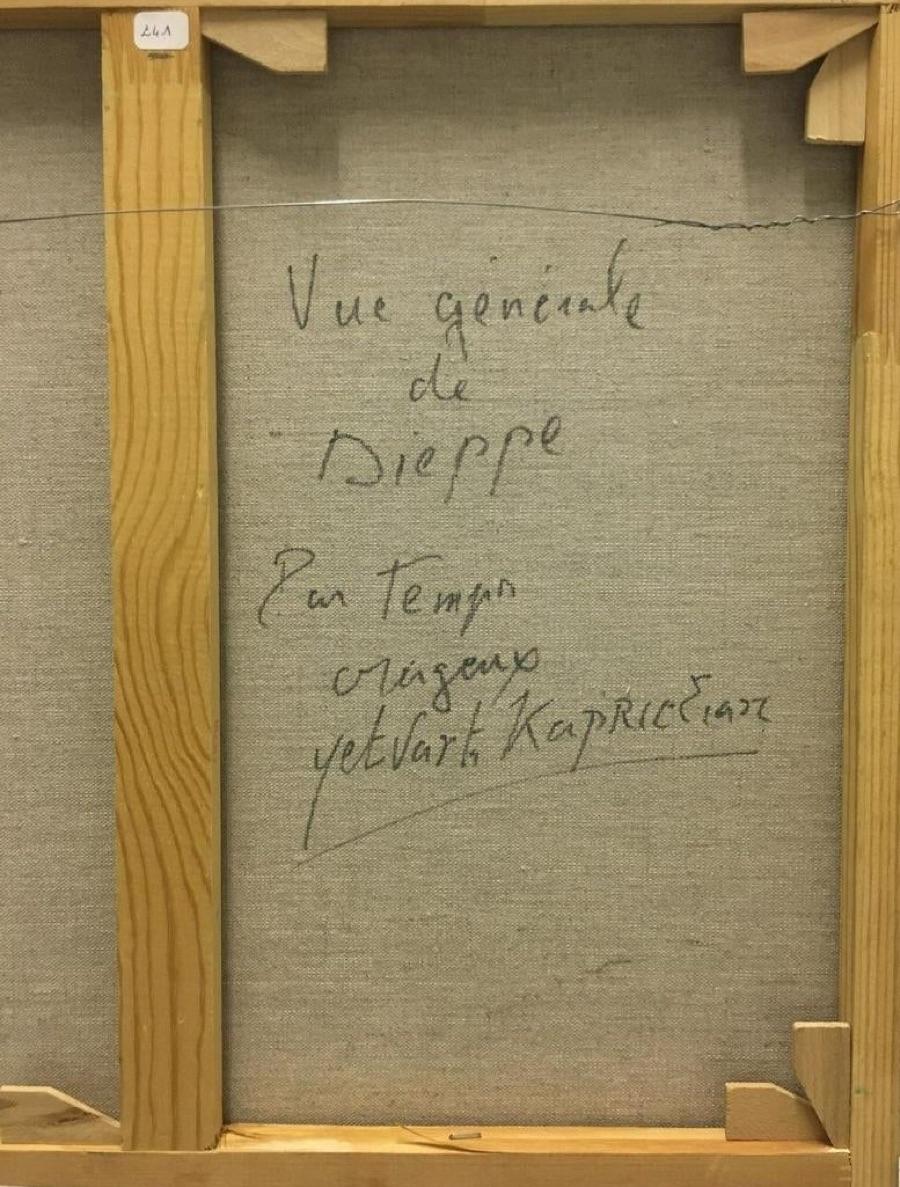 241
Vue générale
de
Dieppe
Par Temps
orageux
yetvart Kapriélian